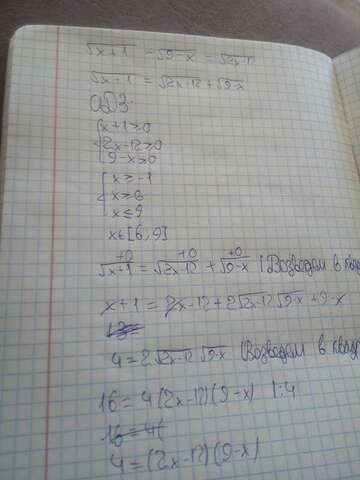 √x+1 - √9-x = √2x-12
√x+1 = √2x-12 + √9-x
ОДЗ:
{x+1≥0
2x-12≥0
9-x≥0
{x≥-1
x≥6
x≤9
x∈[6,9]
√x+1 = √2x-12 + √9-x | Возводим в
x+1 = 2x-12+2√2x-12 √9-x +9-x
13=
4=2√2x-12 √9-x | Возводим в
16=4(2x-12)(9-x) |:4
16=4(
4=(2x-12)(9-x)